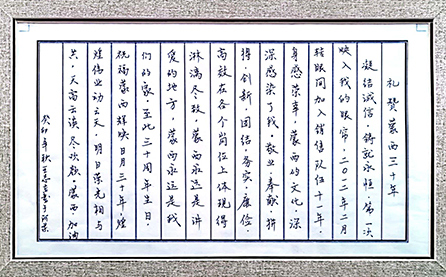 礼赞蒙西三十年
凝结诚信，铸就永恒，第一次
映入我的眼帘，二〇一二年二月
转眼间加入销售队伍十一年，
身感荣幸，蒙西的文化，深
深感染了我，敬业奉献拼
得，创新，团结务实，廉俭，
高效在各个岗位上体现得
淋漓尽致，蒙西永远是讲
爱的地方，蒙西永远是我
们的家，至此三十周年生日，
祝福蒙西辉映日月三十年，煌
煌伟业动云天，明日荣光相与
共，天高云淡尽欢欣，蒙西，加油
癸卯年秋